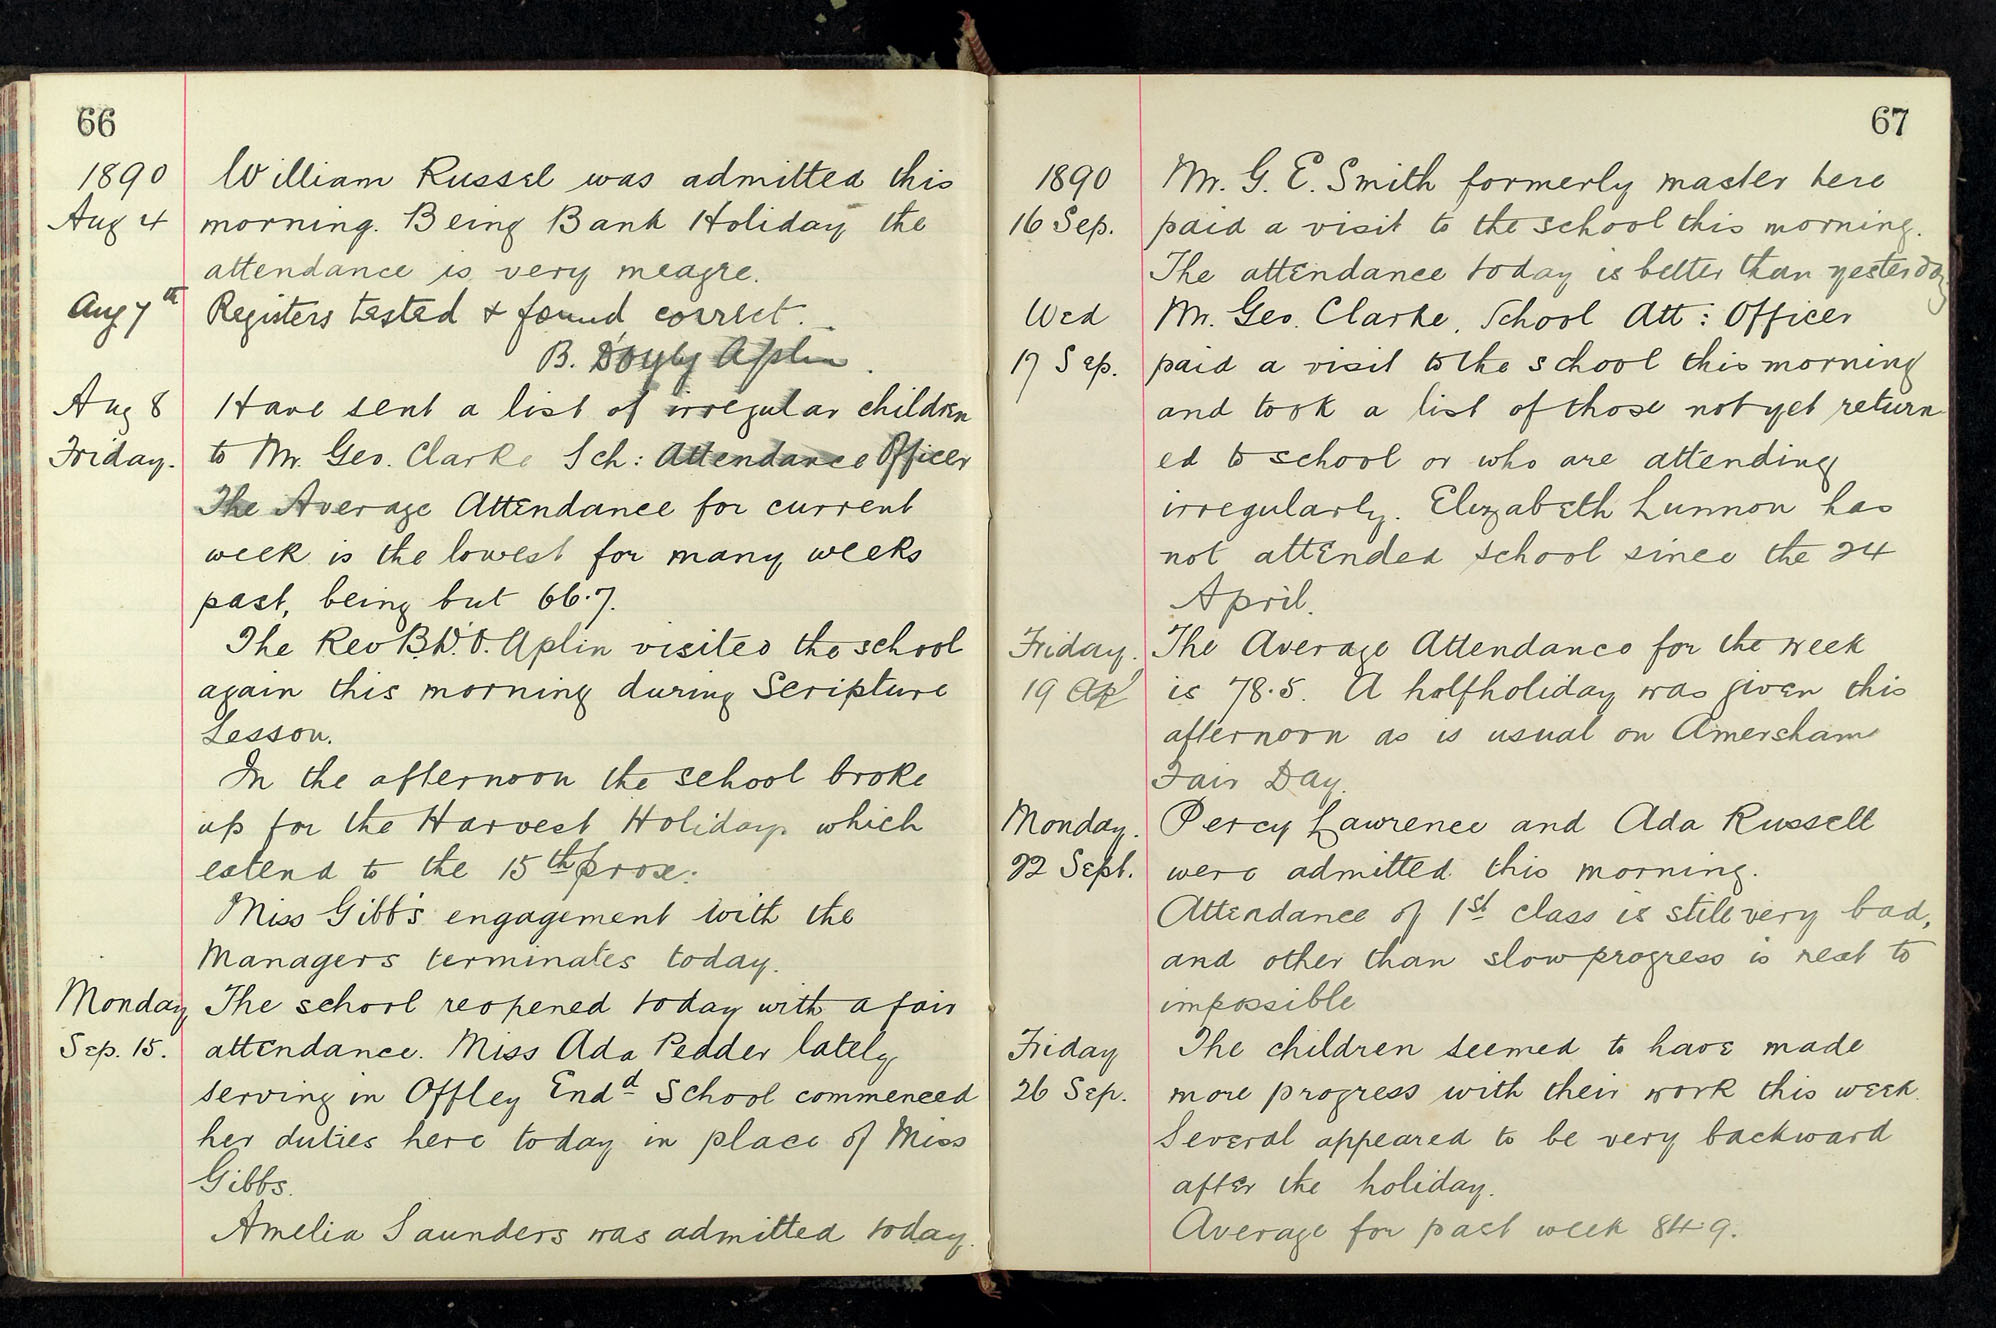 66
1890 William Russel was admitted this
Aug 4 morning. Being Bank Holiday the
attendance is very meagre.
Aug 7th Registers tested & found correct.
B. D'Oyly Aplin.
Aug 8 Have sent a list of irregular children
Friday. to Mr. Geo. Clarke Sch: Attendance Officer
The Average Attendance for current
week is the lowest for many weeks
past, being but 66.7.
The Rev B.D'.O. Aplin visited the school
again this morning during Scripture
Lesson.
In the afternoon the school broke
up for the Harvest Holidays which
extend to the 15th prox:
Miss Gibb's engagement with the
Managers terminates today.
Monday The school reopened today with a fair
Sep. 15. attendance. Miss Ada Pedder lately
serving in Offley Endd School commenced
her duties here today in place of Miss
Gibbs.
Amelia Saunders was admitted today.
67
1890 Mr. G. E. Smith formerly master here
16 Sep. paid a visit to the school this morning.
The attendance today is better than yesterday
Wed Mr. Geo. Clarke, School Att: Officer
17 Sep. paid a visit to the school this morning
and took a list of those not yet return
ed to school or who are attending
irregularly. Elizabeth Lunnon has
not attended school since the 24
April.
Friday. The Average Attendance for the week
19 is 78.5. A halfholiday was given this
afternoon as is usual on Amersham
Fair Day.
Monday. Percy Lawrence and Ada Russell
22 Sept. were admitted this morning.
Attendance of 1st class is still very bad,
and other than slow progress is next to
impossible
Friday The children seemed to have made
26 Sep. more progress with their work this week.
Several appeared to be very backward
after the holiday.
Average for past week 84.9.